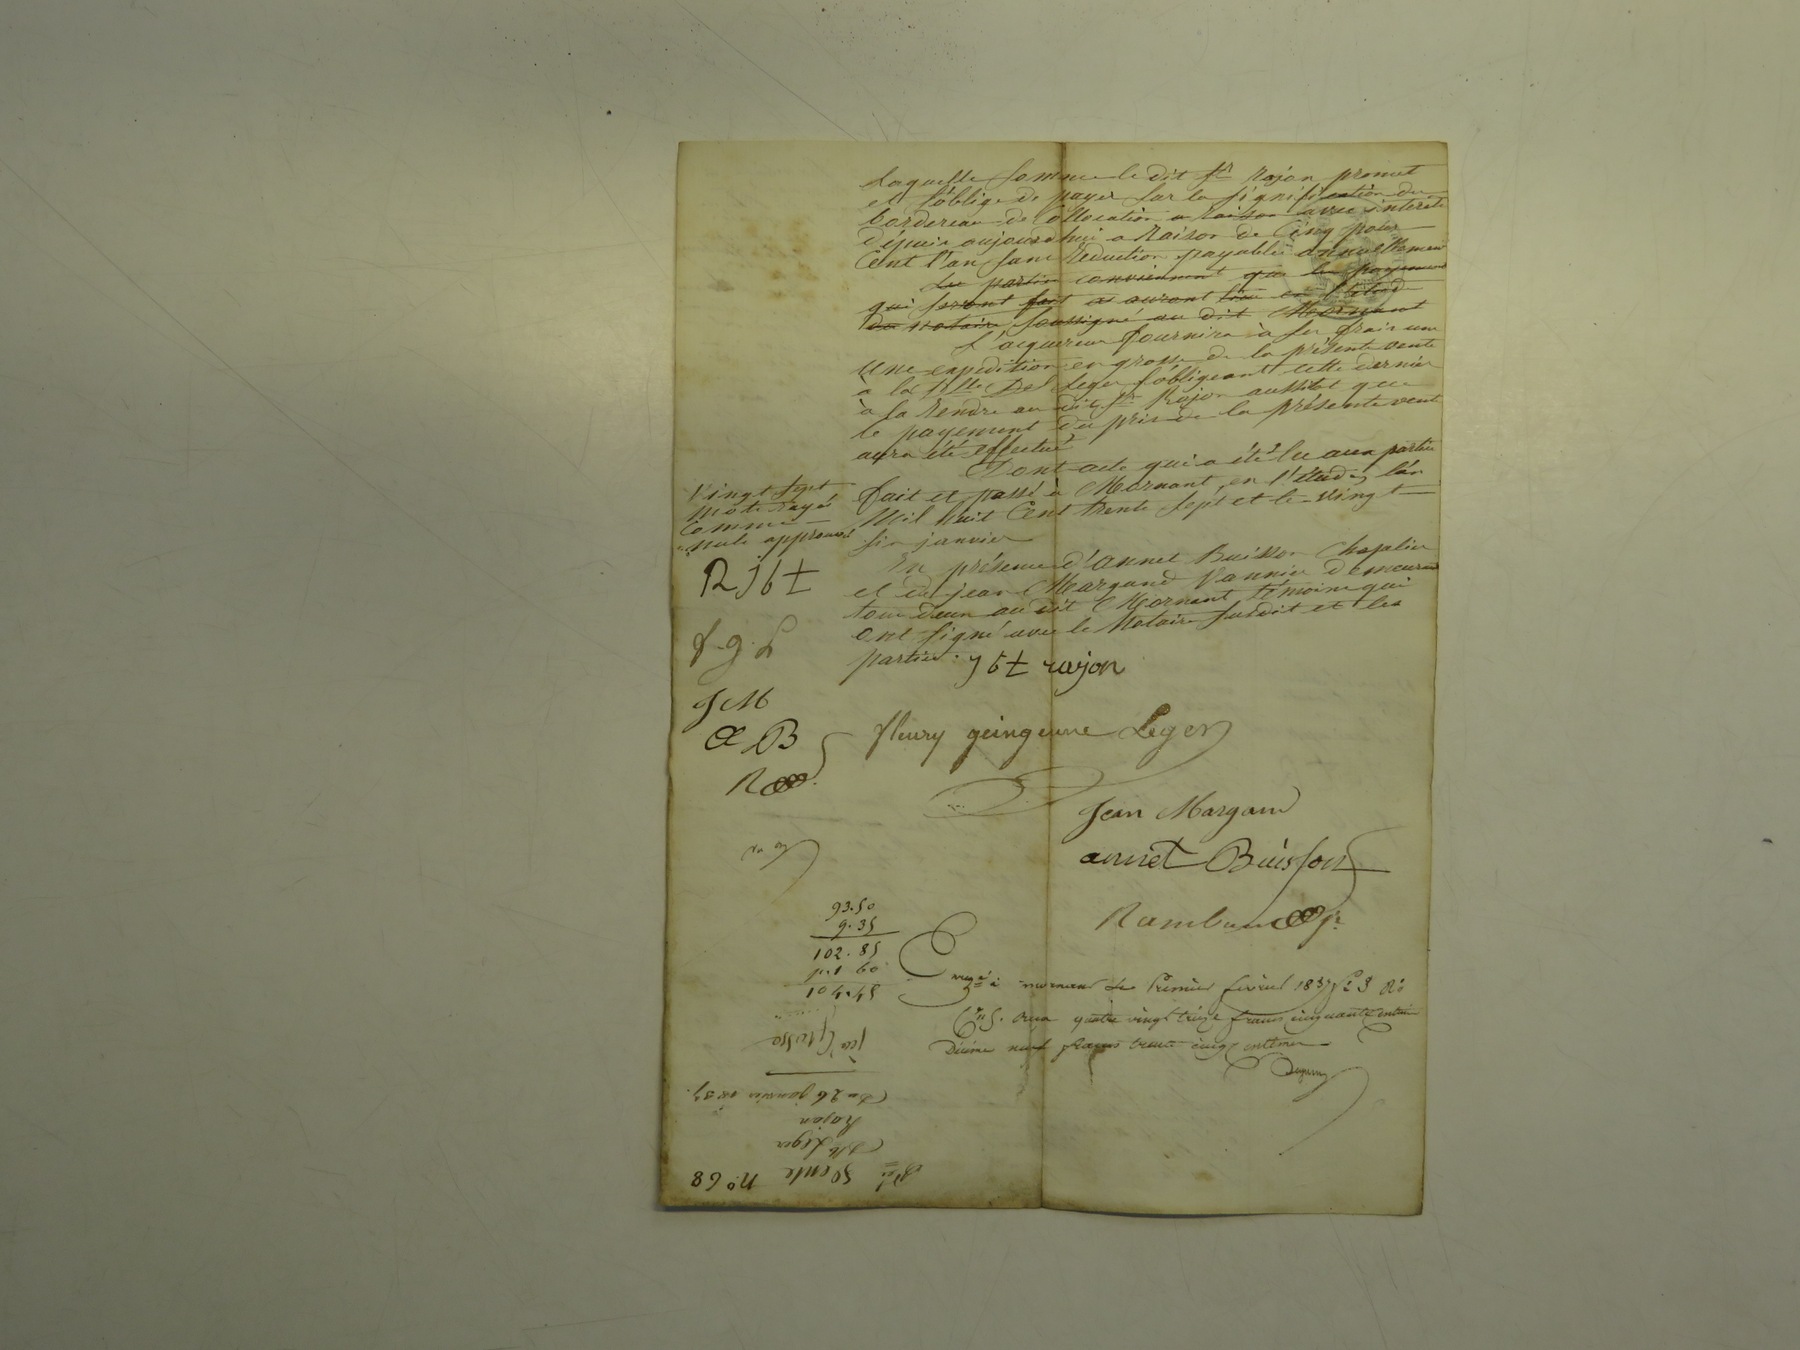 Laquelle somme le dit sr Rajon promet
et s'oblige de payer sur la signification du
bordereau de collocation a Raison avec interets
depuis aujourdhui a Raison de Cinq pour
Cent l'an sans Reduction payables annuellement
Les parties conviennent que les payements
qui seront fait a auront lieu en l'étude
du notaire soussigné au dit Mornant
L'acquereur fournira à ses frais une
Une expedition en grosse de la présente vente
a la Leger s'obligeant cette derniere
à la Rendre au dit sr Rajon aussitot que
le payement du prix de la présente vente
aura été effectué
Dont acte qui a été lu aux parties
fait et passé à Mornant, en l'étude, l'an
Mil huit Cent trente sept et le vingt
six janvier
En présence d'annet Buisson Chapelier
et de jean Margand Vannier demeurant
tous deux au dit Mornant témoins qui
ont signé avec le Notaire susdit et les
parties. J bt rajon
Vingt sept
mots rayés
Comme
nuls approuvé
R J bt
f. g. L
J M
a B
R
fleury Leger
Jean Margand
annet Buisson
93.50
9.35
102.85
1.60
104.45
mornant le Premier fevrier 1837
reçu quatre vingt treize francs cinquante centimes
Décime neuf francs trente cinq centimes
Grosse
Du 26 janvier 1837.
Rajon
Leger
Vente No 68